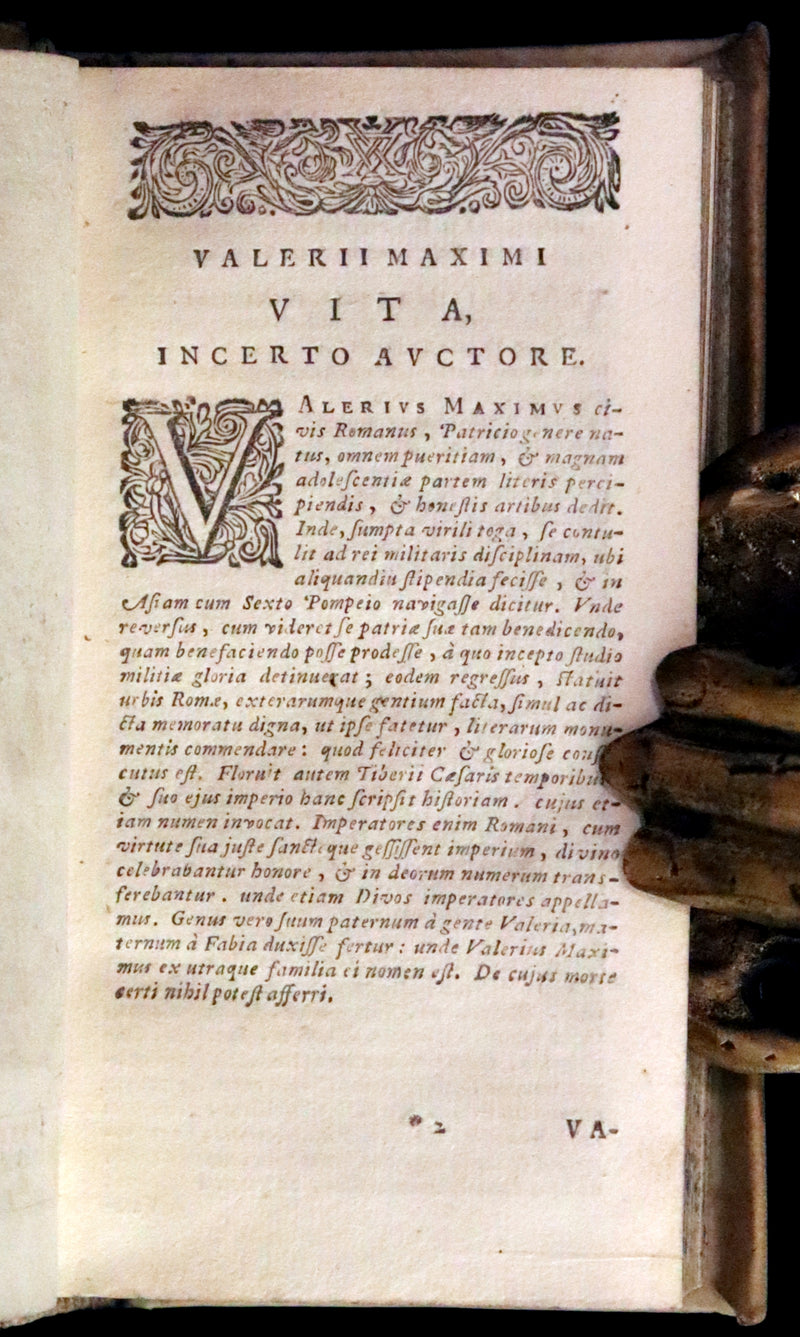 VALERII MAXIMI
VITA,
INCERTO AVCTORE.
VALERIVS MAXIMVS ci-
vis Romanus, Patricio genere na-
tus, omnem pueritiam, & magnam
adoleſcentiæ partem literis perci-
piendis, & honeſtis artibus dedit.
Inde, ſumpta virili toga, ſe contu-
lit ad rei militaris diſciplinam, ubi
aliquandiu ſtipendia feciſſe, & in
Aſiam cum Sexto Pompeio navigaſſe dicitur. Vnde
reverſus, cum videret ſe patriæ ſuæ tam benedicendo,
quam benefaciendo poſſe prodeſſe, à quo incepto ſtudio
militiæ gloria detinuerat; eodem regreſſus, ſtatuit
urbis Romæ, exterarumque gentium facta, ſimul ac di-
cta memoratu digna, ut ipſe fatetur, literarum monu-
mentis commendare: quod feliciter & glorioſe conſ
cutus eſt. Floruit autem Tiberii Cæſaris temporibu
& ſuo ejus imperio hanc ſcripſit hiſtoriam. cujus et-
iam numen invocat. Imperatores enim Romani, cum
virtute ſua juſte ſancteque geſſiſſent imperium, divino
celebrabantur honore, & in deorum numerum trans-
ferebantur. unde etiam Divos imperatores appella-
mus. Genus vero ſuum paternum à gente Valeria, ma-
ternum à Fabia duxiſſe fertur: unde Valerius Maxi-
mus ex utraque familia ei nomen eſt. De cujus morte
certi nihil poteſt afferri.
* 2 VA-